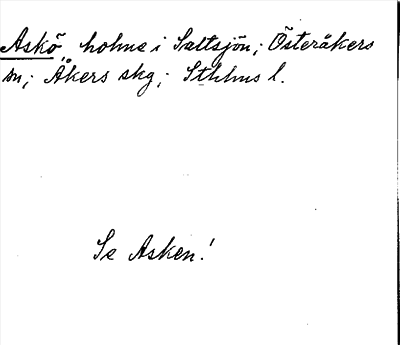 Askö, holme i Saltsjön; Österåkers
sn; Åkers skg; Sthlms l.
Se Asken!